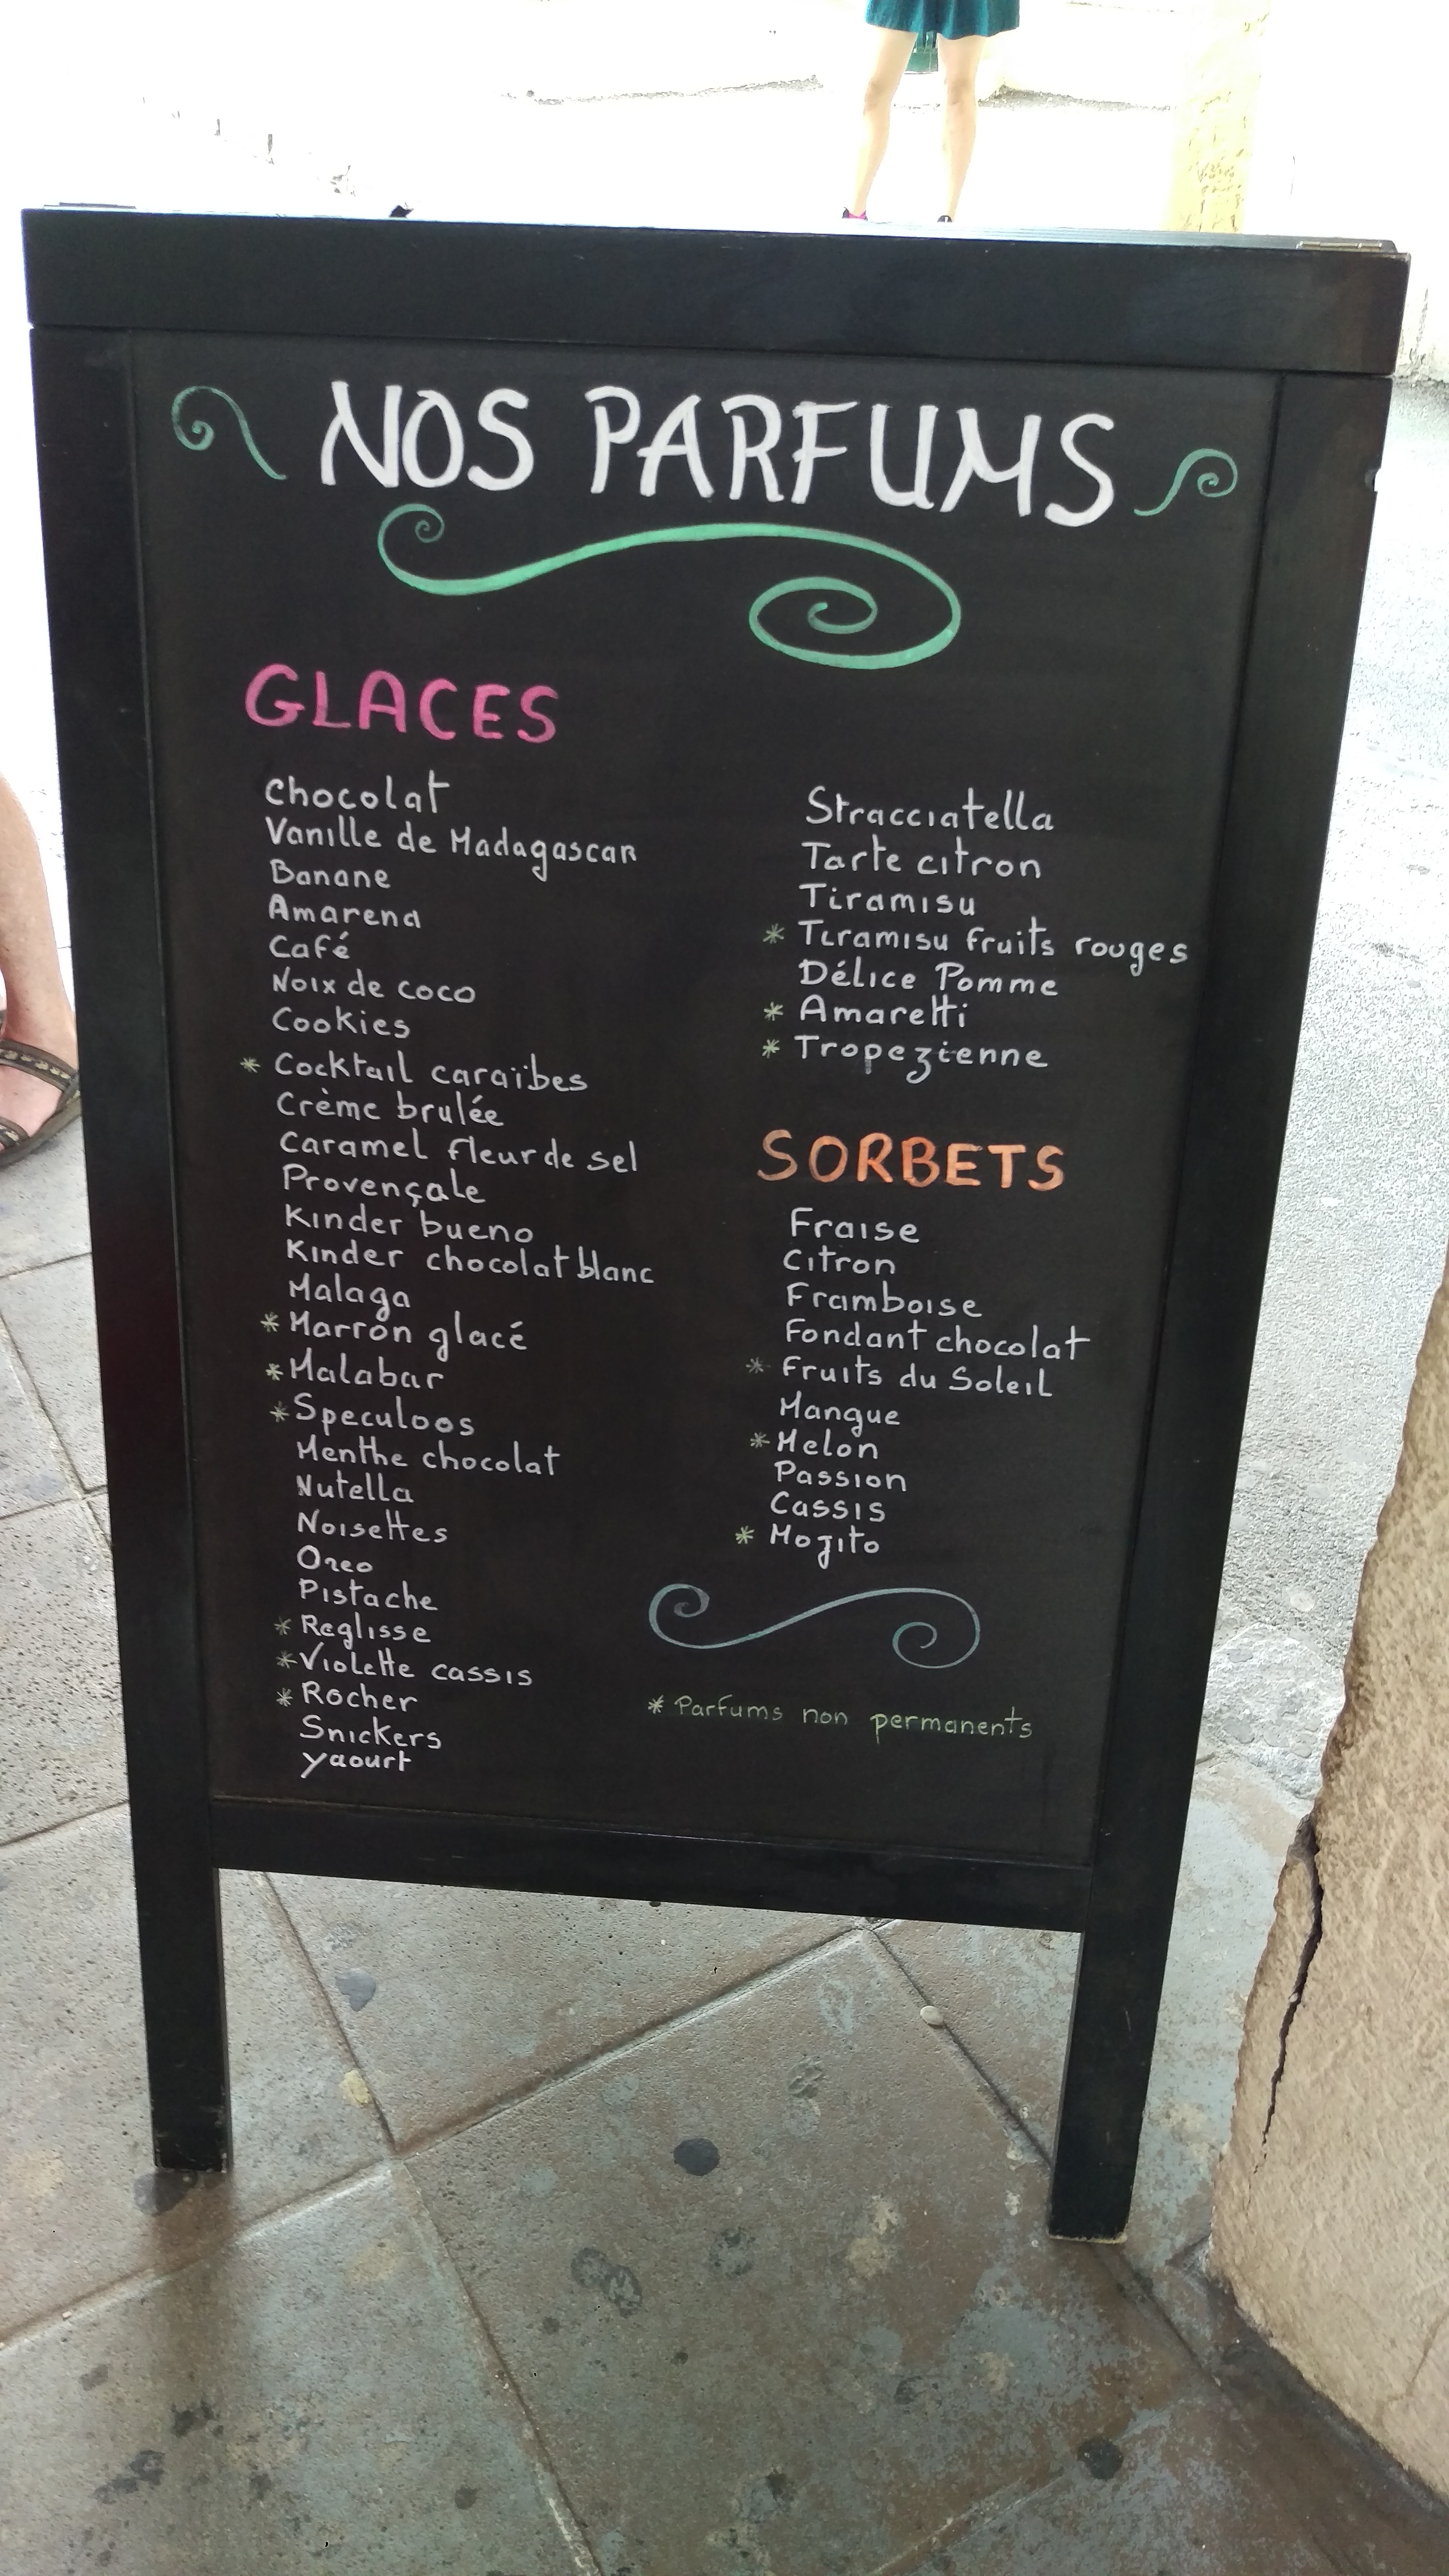 NOS PARFUMS
GLACES
Chocolat
Vanille de Madagascar
Banane
Amarena
Café
Noix de coco
Cookies
* Cocktail caraïbes
Crème brulée
Caramel fleur de sel
Provençale
Kinder bueno
Kinder chocolat blanc
Malaga
* Marron glacé
* Malabar
* Speculoos
Menthe chocolat
Nutella
Noisettes
Oreo
Pistache
* Reglisse
* Violette cassis
* Rocher
Snickers
Yaourt
Stracciatella
Tarte citron
Tiramisu
* Tiramisu fruits rouges
Délice Pomme
* Amaretti
* Tropezienne
SORBETS
Fraise
Citron
Framboise
Fondant chocolat
* Fruits du Soleil
Mangue
* Melon
Passion
Cassis
* Mojito
* Parfums non permanents